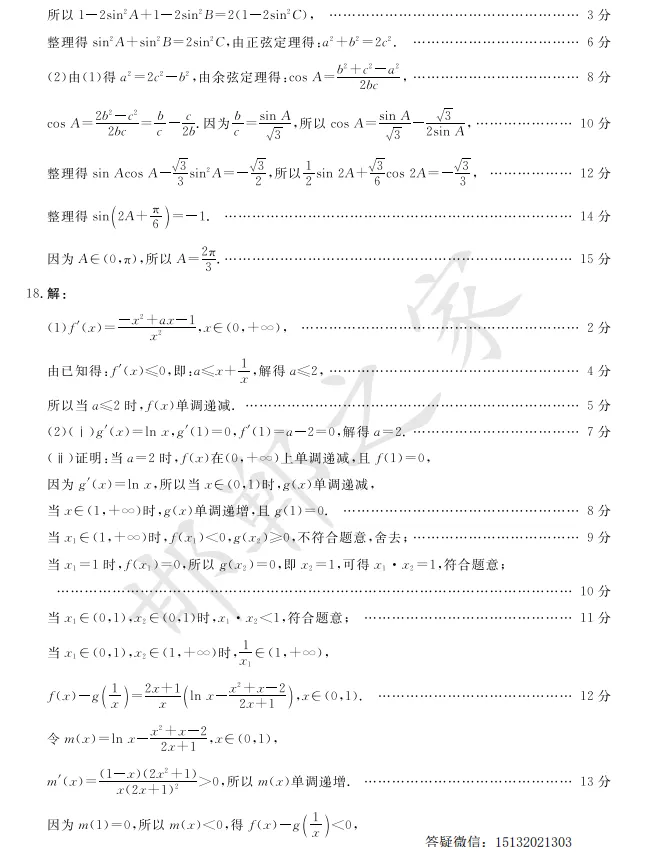 所以 1-2sin²A+1-2sin²B=2(1-2sin²C), …… 3 分
整理得 sin²A+sin²B=2sin²C,由正弦定理得:a²+b²=2c². …… 6 分
(2)由(1)得 a²=2c²-b²,由余弦定理得:cos A=\frac{b²+c²-a²}{2bc}, …… 8 分
cos A=\frac{2b²-c²}{2bc}=\frac{b}{c}-\frac{c}{2b}.因为\frac{b}{c}=\frac{sin A}{\sqrt{3}},所以 cos A=\frac{sin A}{\sqrt{3}}-\frac{\sqrt{3}}{2sin A}, …… 10 分
整理得 sin Acos A-\frac{\sqrt{3}}{3}sin²A=-\frac{\sqrt{3}}{2},所以\frac{1}{2}sin 2A+\frac{\sqrt{3}}{6}cos 2A=-\frac{\sqrt{3}}{3}, …… 12 分
整理得 sin(2A+\frac{π}{6})=-1. …… 14 分
因为 A∈(0,π),所以 A=\frac{2π}{3}. …… 15 分
18.解:
(1)f′(x)=\frac{-x²+ax-1}{x²},x∈(0,+∞), …… 2 分
由已知得:f′(x)≤0,即:a≤x+\frac{1}{x},解得 a≤2, …… 4 分
所以当 a≤2 时,f(x)单调递减. …… 5 分
(2)(ⅰ)g′(x)=ln x,g′(1)=0,f′(1)=a-2=0,解得 a=2. …… 7 分
(ⅱ)证明:当 a=2 时,f(x)在(0,+∞)上单调递减,且 f(1)=0,
因为 g′(x)=ln x,所以当 x∈(0,1)时,g(x)单调递减,
当 x∈(1,+∞)时,g(x)单调递增,且 g(1)=0. …… 8 分
当 x₁∈(1,+∞)时,f(x₁)<0,g(x₂)≥0,不符合题意,舍去; …… 9 分
当 x₁=1 时,f(x₁)=0,所以 g(x₂)=0,即 x₂=1,可得 x₁·x₂=1,符合题意;
…… 10 分
当 x₁∈(0,1),x₂∈(0,1)时,x₁·x₂<1,符合题意; …… 11 分
当 x₁∈(0,1),x₂∈(1,+∞)时,\frac{1}{x₁}∈(1,+∞),
f(x)-g(\frac{1}{x})=\frac{2x+1}{x}(ln x-\frac{x²+x-2}{2x+1}),x∈(0,1). …… 12 分
令 m(x)=ln x-\frac{x²+x-2}{2x+1},x∈(0,1),
m′(x)=\frac{(1-x)(2x²+1)}{x(2x+1)²}>0,所以 m(x)单调递增. …… 13 分
因为 m(1)=0,所以 m(x)<0,得 f(x)-g(\frac{1}{x})<0,
答疑微信：15132021303
邯郸之家